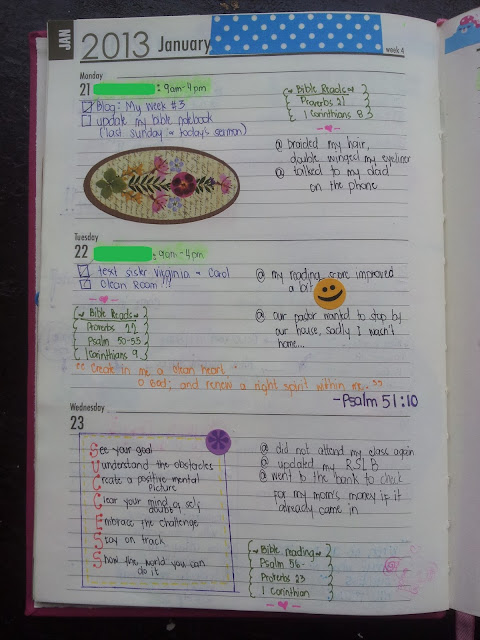 JAN
2013 January
week 4
Monday
21 : 9am-4pm
Blog: My week #3
update my bible notebook
(last sunday & today's sermon)
Bible Reads
Proverbs 21
1 Corinthians 8
@ braided my hair,
double winged my eyeliner
@ talked to my dad
on the phone
Tuesday
22 : 9am-4pm
text sister Virginia - Carol
Clean Room !!!
Bible Reads
Proverbs 22
Psalm 50-55
1 Corinthians 9
@ my reading score improved
a bit
@ our pastor wanted to stop by
our house, sadly I wasn't
home...
"Create in me a clean heart
O God; and renew a right spirit within me."
-Psalm 51:10
Wednesday
23
See your goal
Understand the obstacles
Create a positive mental
picture
Clear your mind of self
doubt
Embrace the challenge
Stay on track
Show the world you can
do it
@ did not attend my class again
@ updated my RSLB
@ went to the bank to check
for my mom's money if it
already came in
Bible reading
Psalm 56-
Proverbs 23
1 Corinthian